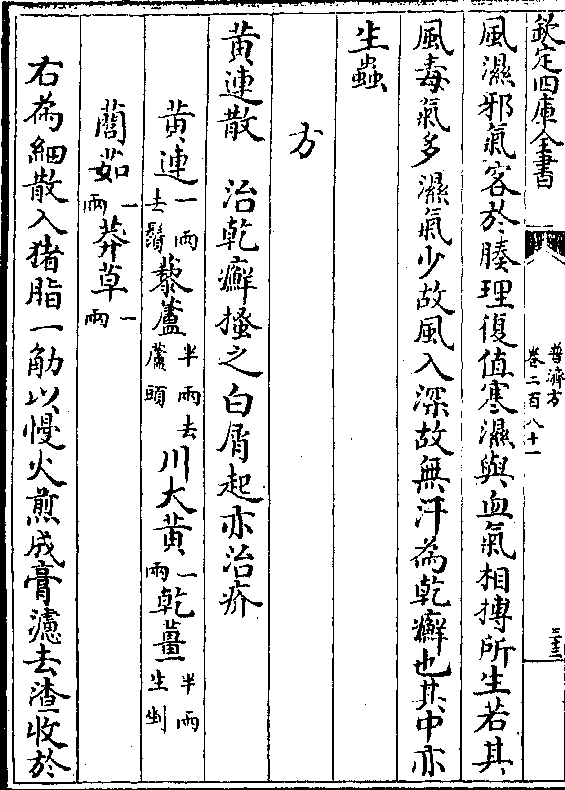 欽定四庫全書
普濟方
卷二百八十一
三十三
風濕邪氣客於腠理復值寒濕與血氣相搏所生若其
風毒氣多濕氣少故風入深故無汗為乾癬也其中亦
生蟲
方
黄連散 治乾癬搔之白屑起亦治疥
黄連一兩去鬚藜蘆半兩去蘆頭川大黄一兩乾薑半兩生剉
䕡茹一兩莽草一兩
右為細散入猪脂一觔以慢火煎成膏濾去渣收於